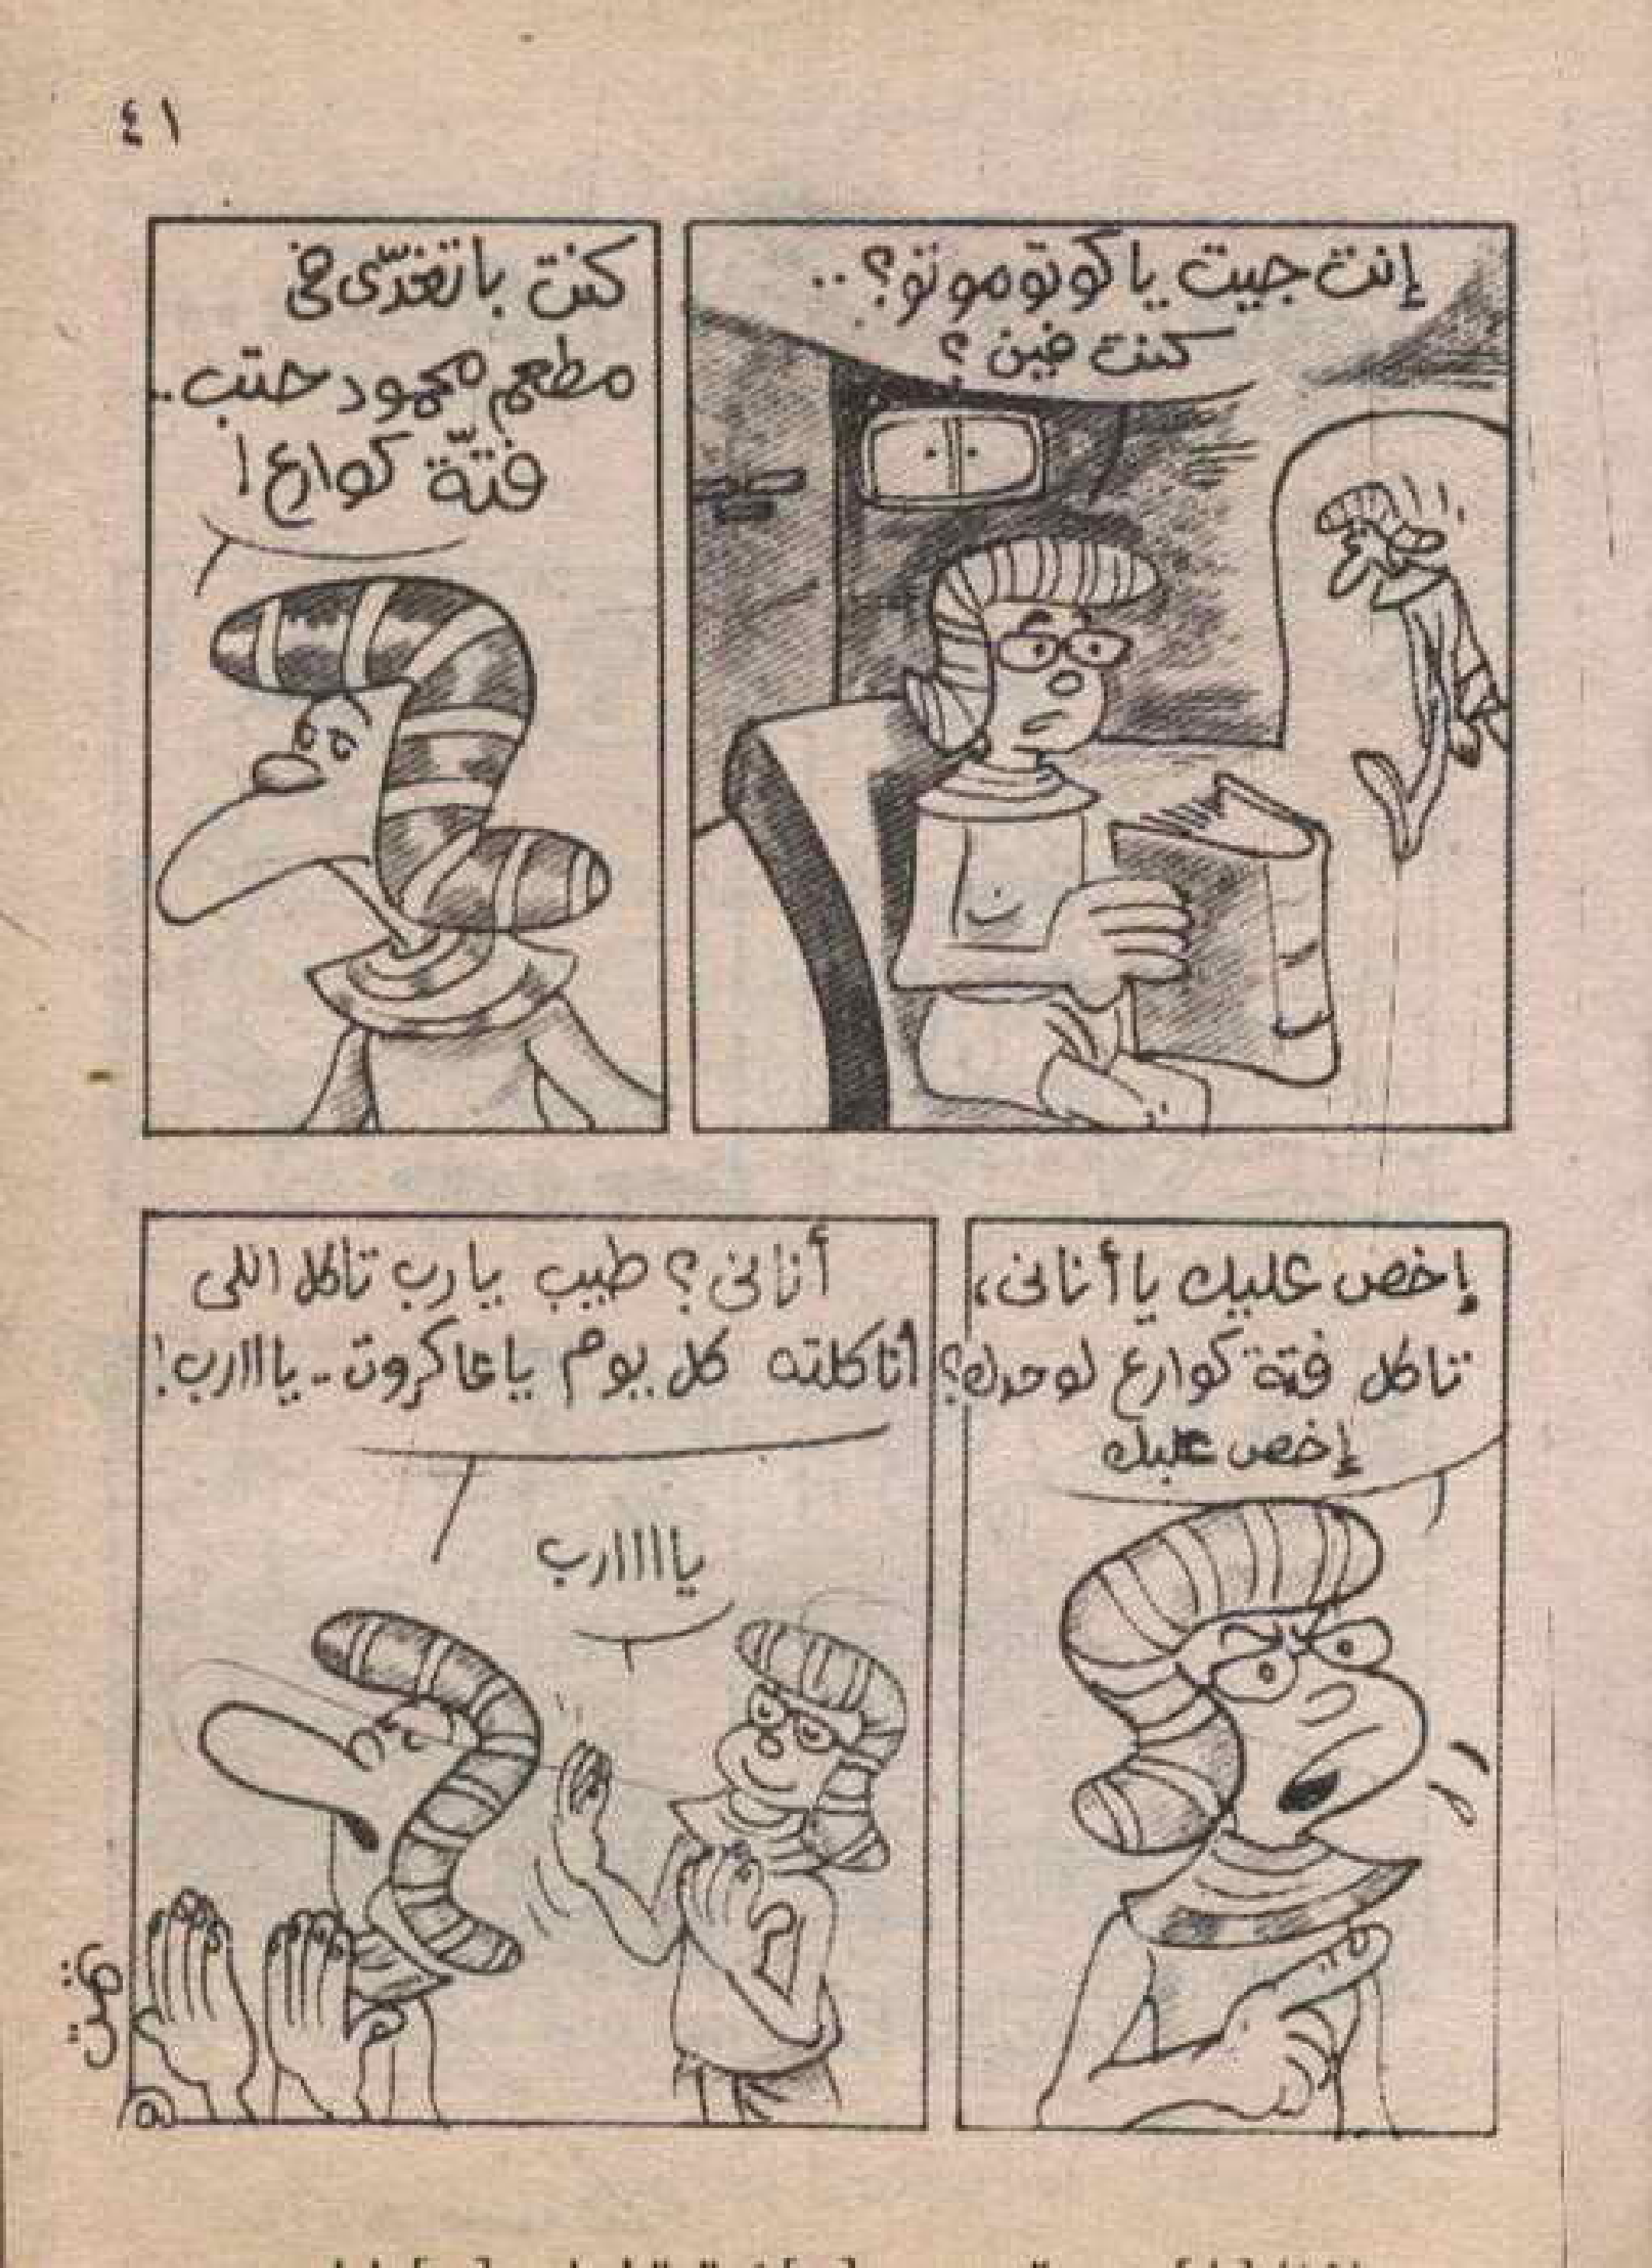 ٤١
إنت جيت يا كوتوموتو؟..
كنت فين؟
كنت باتغدّى في
مطعم محمود حتب..
فتّة كوارع!
إخص عليك يا أنانى،
تاكل فتة كوارع لوحدك؟
إخص عليك
أنانى؟ طيب يارب تاكل اللى
أنا كلته كل يوم يا عا كروت.. يااارب!
ياااارب